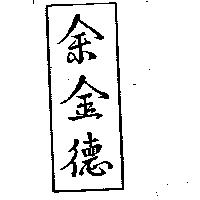 余金德